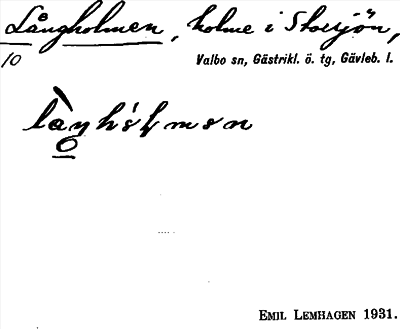 Långholmen, holme i Storsjön,
10
Valbo sn, Gästrikl. ö. tg, Gävleb. l.
EMIL LEMHAGEN 1931.